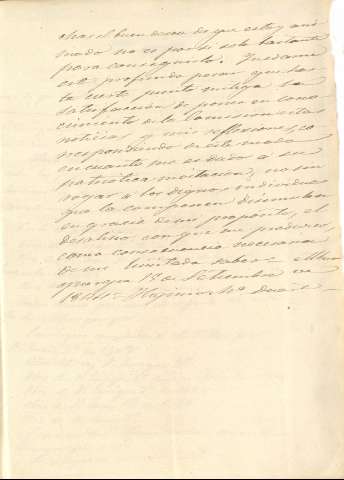 mas el buen deseo de que estoy ani
mado no es por si solo bastante
para conseguirlo. Quedame
este profundo pesar, que has
ta cierto punto mitiga la
satisfaccion de poner en cono
cimiento de la Comision estas
noticias y mis reflexiones, co
rrespondiendo de este modo
en cuanto me es dado a su
patriotica invitacion, no sin
rogar a los dignos individuos
que la componen disimulen
en gracia de mi proposito, el
desaliño con que me produzco,
como consecuencia necesaria
de mi limitado saber = Albu
querque 12 de Setembre de
1844 = Higinio Mª